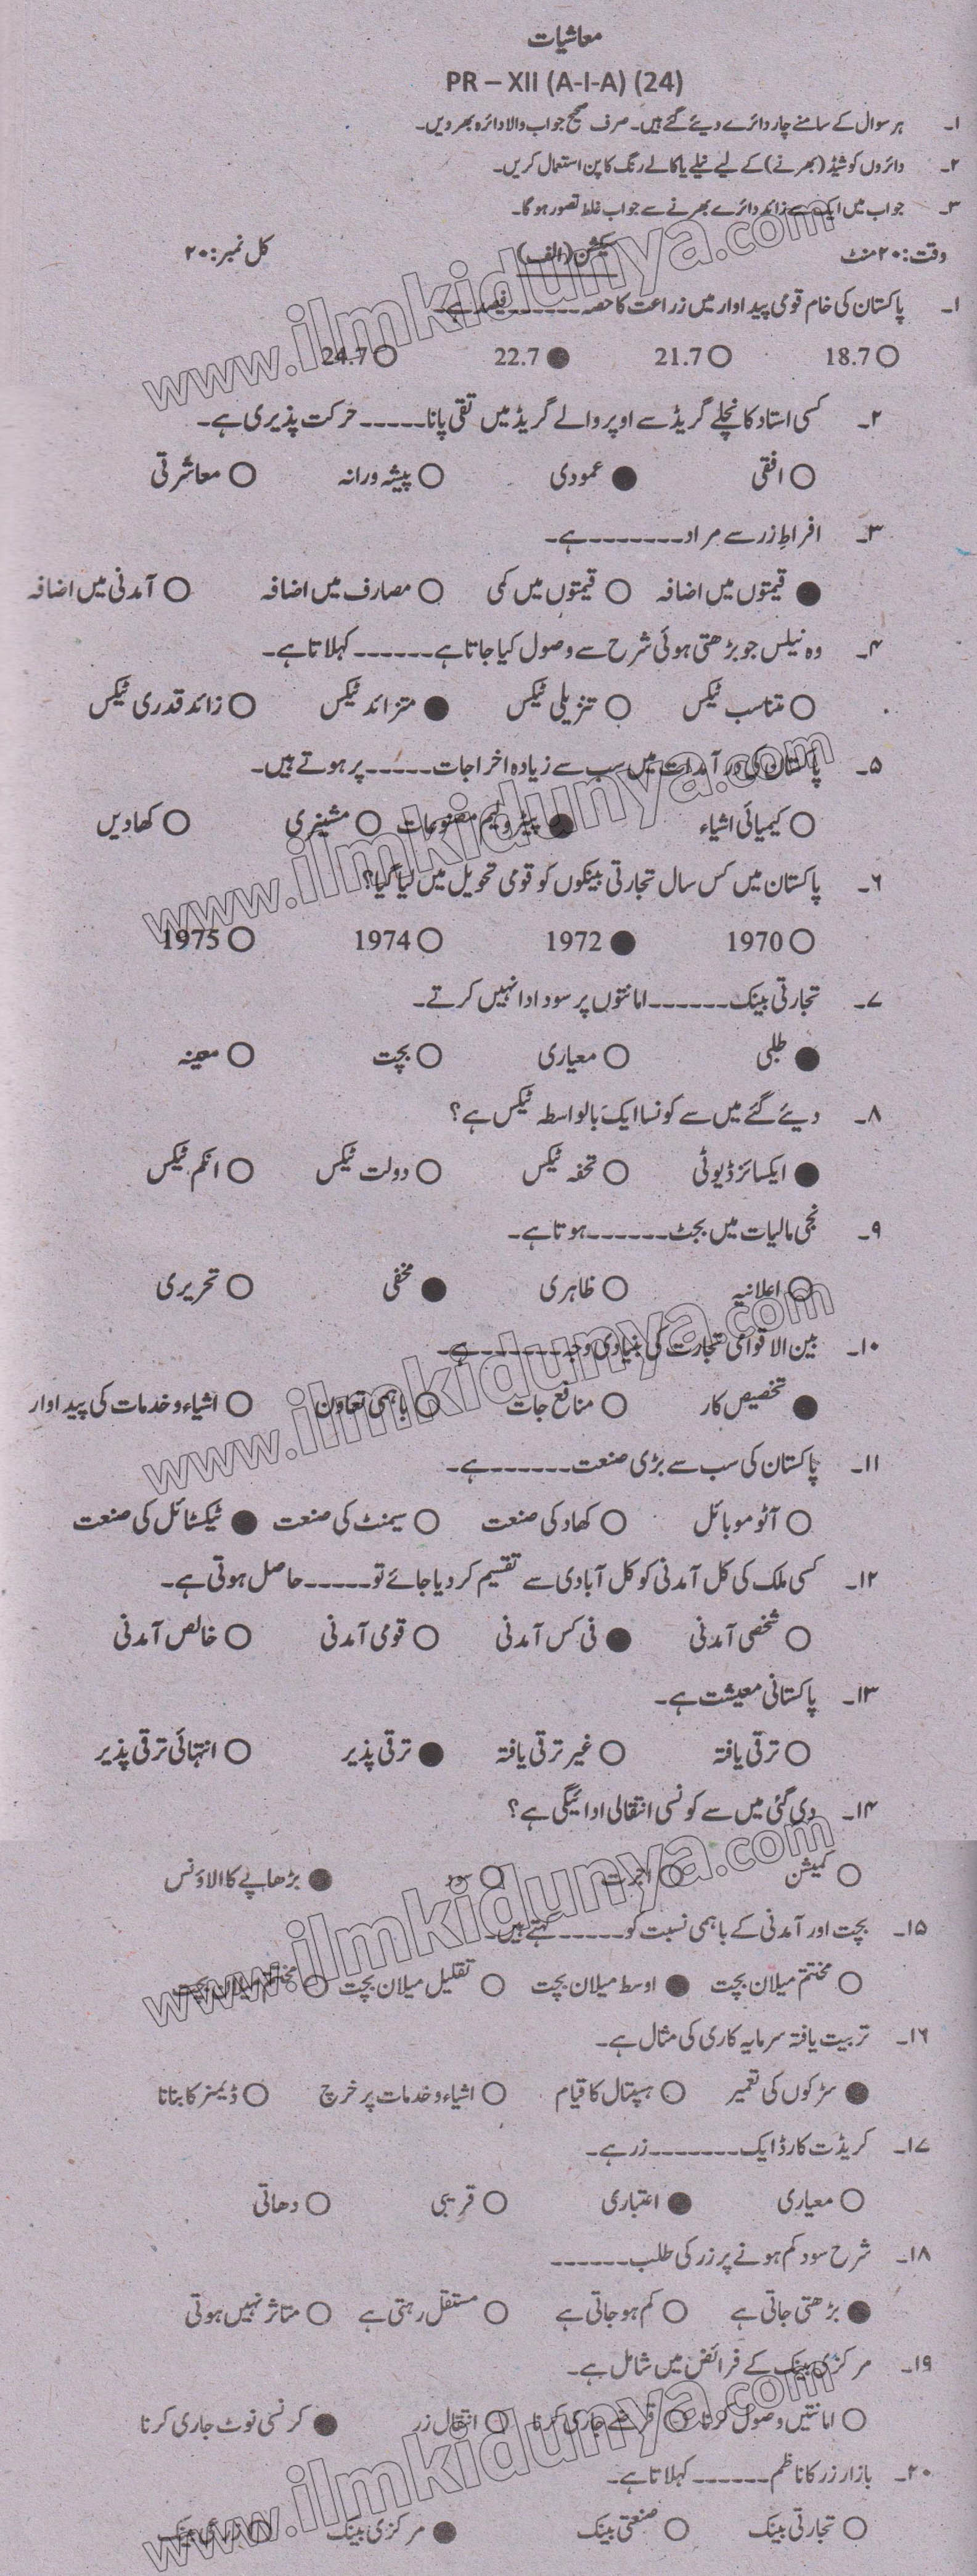 معاشیات
PR – XII (A-I-A) (24)
۱۔ ہر سوال کے سامنے چار دائرے دیئے گئے ہیں۔ صرف صحیح جواب والا دائرہ بھر دیں۔
۲۔ دائروں کو شیڈ (بھرنے) کے لیے نیلے یا کالے رنگ کا پن استعمال کریں۔
۳۔ جواب میں ایک سے زائد دائرے بھرنے سے جواب غلط تصور ہوگا۔
وقت: ۲۰ منٹ سیکشن (الف) کل نمبر: ۲۰
۱۔ پاکستان کی خام قومی پیداوار میں زراعت کا حصہ ------- فیصد ہے۔
○ 18.7 ○ 21.7 ● 22.7 ○ 24.7
۲۔ کسی استاد کا نچلے گریڈ سے اوپر والے گریڈ میں تقی پانا ----- حرکت پذیری ہے۔
○ افقی ● عمودی ○ پیشہ ورانہ ○ معاشرتی
۳۔ افراطِ زر سے مراد -------- ہے۔
● قیمتوں میں اضافہ ○ قیمتوں میں کمی ○ مصارف میں اضافہ ○ آمدنی میں اضافہ
۴۔ وہ ٹیکس جو بڑھتی ہوئی شرح سے وصول کیا جاتا ہے ------ کہلاتا ہے۔
○ متناسب ٹیکس ○ تنزیلی ٹیکس ● متزائد ٹیکس ○ زائد قدری ٹیکس
۵۔ پاکستان کی در آمدات میں سب سے زیادہ اخراجات ----- پر ہوتے ہیں۔
○ کیمیائی اشیاء ● پیٹرولیم مصنوعات ○ مشینری ○ کھادیں
۶۔ پاکستان میں کس سال تجارتی بینکوں کو قومی تحویل میں لیا گیا؟
○ 1970 ● 1972 ○ 1974 ○ 1975
۷۔ تجارتی بینک ------ امانتوں پر سود ادا نہیں کرتے۔
● طلبی ○ معیاری ○ بچت ○ معینہ
۸۔ دیئے گئے میں سے کونسا ایک بالواسطہ ٹیکس ہے؟
● ایکسائز ڈیوٹی ○ تحفہ ٹیکس ○ دولت ٹیکس ○ انکم ٹیکس
۹۔ نجی مالیات میں بجٹ ------ ہوتا ہے۔
○ اعلانیہ ○ ظاہری ● مخفی ○ تحریری
۱۰۔ بین الاقوامی تجارت کی بنیادی وجہ ------- ہے۔
● تخصیص کار ○ منافع جات ○ باہمی تعاون ○ اشیاء و خدمات کی پیداوار
۱۱۔ پاکستان کی سب سے بڑی صنعت ------ ہے۔
○ آٹو موبائل ○ کھاد کی صنعت ○ سیمنٹ کی صنعت ● ٹیکسٹائل کی صنعت
۱۲۔ کسی ملک کی کل آمدنی کو کل آبادی سے تقسیم کر دیا جائے تو ----- حاصل ہوتی ہے۔
○ شخصی آمدنی ● فی کس آمدنی ○ قومی آمدنی ○ خالص آمدنی
۱۳۔ پاکستانی معیشت ہے۔
○ ترقی یافتہ ○ غیر ترقی یافتہ ● ترقی پذیر ○ انتہائی ترقی پذیر
۱۴۔ دی گئی میں سے کونسی انتقالی ادائیگی ہے؟
○ کمیشن ○ اجرت ○ سود ● بڑھاپے کا الاؤنس
۱۵۔ بچت اور آمدنی کے باہمی نسبت کو ----- کہتے ہیں۔
○ مختتم میلان بچت ● اوسط میلان بچت ○ تقلیل میلان بچت ○ میلان بچت
۱۶۔ تربیت یافتہ سرمایہ کاری کی مثال ہے۔
● سڑکوں کی تعمیر ○ ہسپتال کا قیام ○ اشیاء و خدمات پر خرچ ○ ڈیمز کا بنانا
۱۷۔ کریڈٹ کارڈ ایک ------- زر ہے۔
○ معیاری ● اعتباری ○ قریبی ○ دھاتی
۱۸۔ شرح سود کم ہونے پر زر کی طلب ------
● بڑھتی جاتی ہے ○ کم ہو جاتی ہے ○ مستقل رہتی ہے ○ متاثر نہیں ہوتی
۱۹۔ مرکزی بینک کے فرائض میں شامل ہے۔
○ امانتیں وصول کرنا ○ قرضے جاری کرنا ○ انتقال زر ● کرنسی نوٹ جاری کرنا
۲۰۔ بازار زر کا ناظم ------ کہلاتا ہے۔
○ تجارتی بینک ○ صنعتی بینک ● مرکزی بینک ○ زرعی بینک
www.ilmkidunya.com
www.ilmkidunya.com
www.ilmkidunya.com
www.ilmkidunya.com
www.ilmkidunya.com